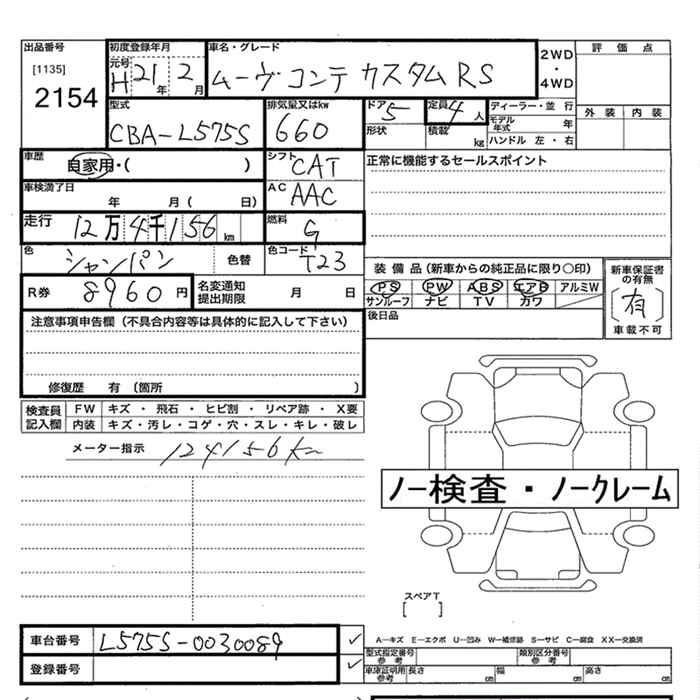 出品番号
[1135]
2154
初度登録年月
元号
H 21年 2月
車名・グレード
ムーヴ コンテ カスタム RS
2WD
・
4WD
評 価 点
外 装 内 装
型式
CBA-L575S
排気量又はkw
660
ドア 5
形状
定員 4人
積載 kg
ディーラー・並 行
モデル年式 年
ハンドル 左・右
車歴
自家用・( )
シフト
CAT
正常に機能するセールスポイント
車検満了日
年 月( 日)
AC
AAC
走行 12万4千156km
燃料
G
色
シャンパン
色替
色コード
T23
装 備 品 (新車からの純正品に限り○印)
PS PW ABS エアB アルミW
サンルーフ ナビ TV カワ
新車保証書の有無
[有]
車載不可
R券 8960円
名変通知
提出期限
月 日
後日品
注意事項申告欄(不具合内容等は具体的に記入して下さい)
修復歴 有 (箇所 )
検査員
記入欄
FW キズ ・ 飛石 ・ ヒビ割 ・ リペア跡 ・ X要
内装 キズ・汚レ・コゲ・穴・スレ・キレ・破レ
メーター指示 124156km
ノー検査・ノークレーム
スペアT
[ ]
車台番号 L575S-0030089 ✓
登録番号 ✓
A―キズ E―エクボ U―凹み W―補修跡 S―サビ C―腐食 XX―交換済
型式指定番号
参考
類別区分番号
参考
車庫証明用
参考
長さ cm 幅 cm 高さ cm